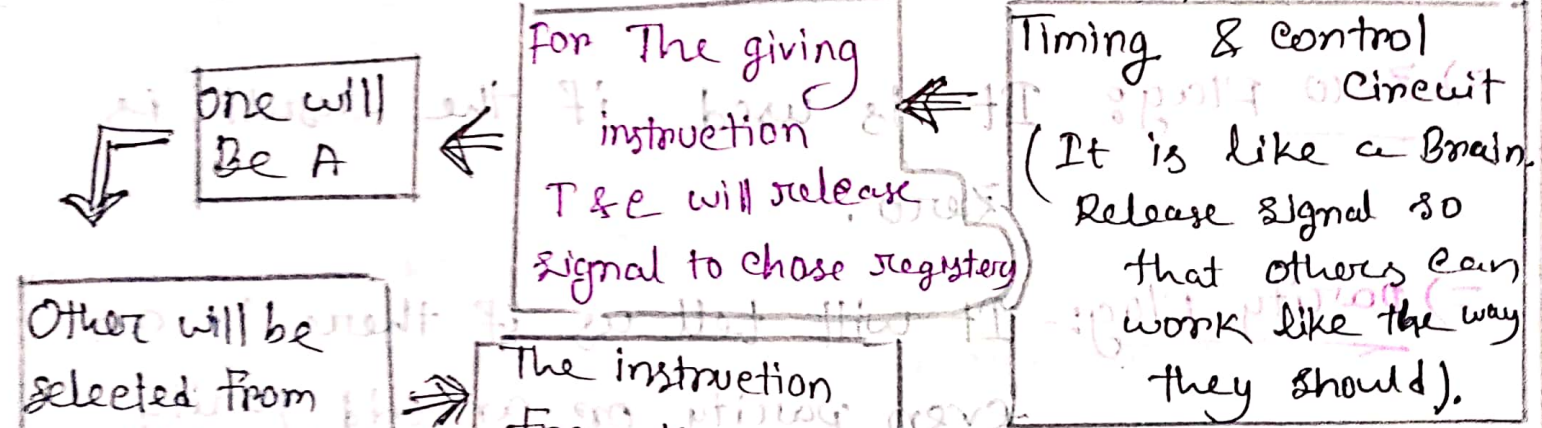 Timing & control
Circuit
(It is like a Brain.
Release signal so
that others can
work like the way
they should).
For The giving
instruction
T & C will release
signal to chose registers
one will
Be A
Other will be
selected from
The instruction